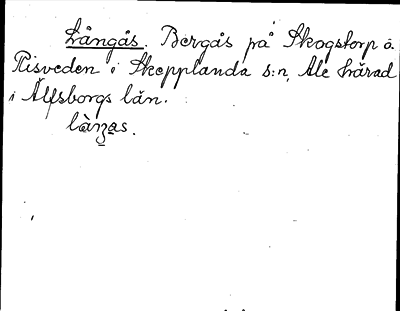 Långås. Bergås på Skogstorp å
Risveden i Skepplanda s:n, Ale härad
i Älfsborgs län.